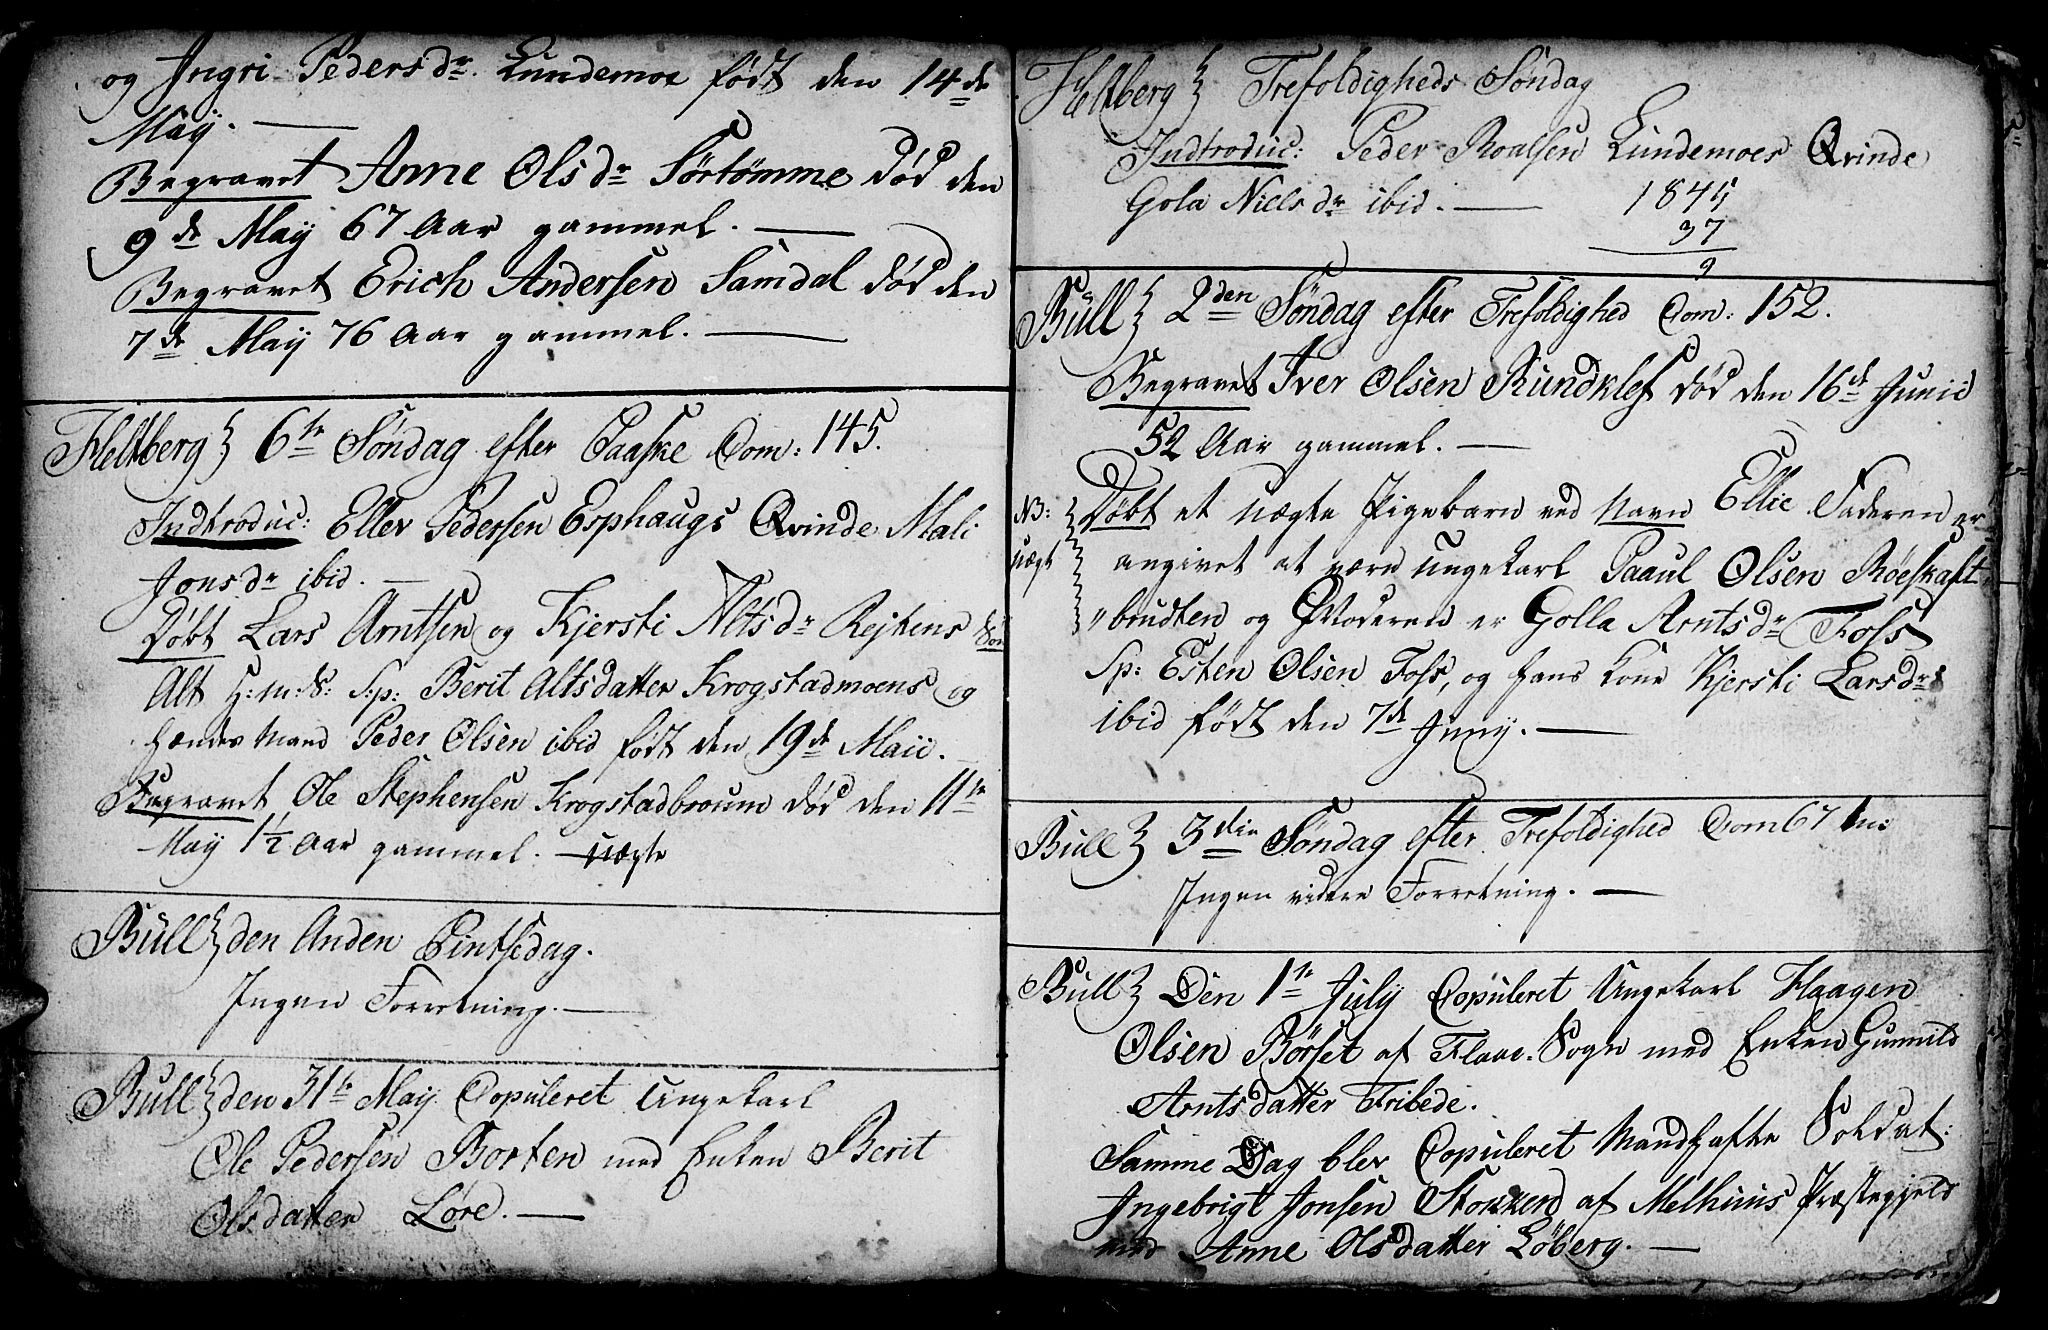 og Ingri Pedersdr. Lundemoe født den 14de
Maÿ.
Begravet Anne Olsdr Sörtömme død den
9de Maÿ 67 Aar gammel.
Begravet Erich Andersen Samdal død den
7de Maÿ 76 Aar gammel.
Heltberg 6te Søndag efter Paaske Com: 145.
Indtroduc: Eller Pedersen Esphaugs Qvinde Mali
Jonsdr ibid.
Døbt Lars Arntsen og Kjersti Altsdr Rejtens Søn
Alt H:m:S: Sp: Berit Altsdatter Krogstadmoens og
hendes Mand Peder Olsen ibid født den 19de Maii.
Begravet Ole Stephensen Krogstadbroum død den 11te
Maÿ 1½ Aar gammel. uægte
Bull den Anden Pintsedag.
Ingen Forretning.
Bull den 31te Maÿ Copuleret Ungekarl
Ole Pedersen Borten med Enken Berit
Olsdatter Løre.
Heltberg Trefoldigheds Søndag
Indtroduc: Peder Roalsen Lundemoes Qvinde
Gola Nielsdr ibid. 1845
37
9
Bull 2den Søndag efter Trefoldighed Com: 152.
Begravet Iver Olsen Rundklef død den 16de Junii
52 Aar gammel.
NB: Døbt et uægte Pigebarn ved Navn Ellie Faderen er
uægt angivet at være ungekarl Paaul Olsen Røeskaft
brudten og Moderen er Golla Arntsdr Foss
Sp: Esten Olsen Foss, og hans Kone Kjersti Larsdr
ibid født den 7de Juny.
Bull 3die Søndag efter Trefoldighed Com 67
Ingen videre Forretning.
Bull Den 1te July Copuleret Ungekarl Haagen
Olsen Børset af Flaae Sogn med Enken Gunnild
Arntsdatter Fribede.
Samme Dag blev Copuleret Mandhafte Soldat:
Ingebrigt Jonsen Stokkend af Melhuus Præstegjeld
med Anne Olsdatter Løberg.